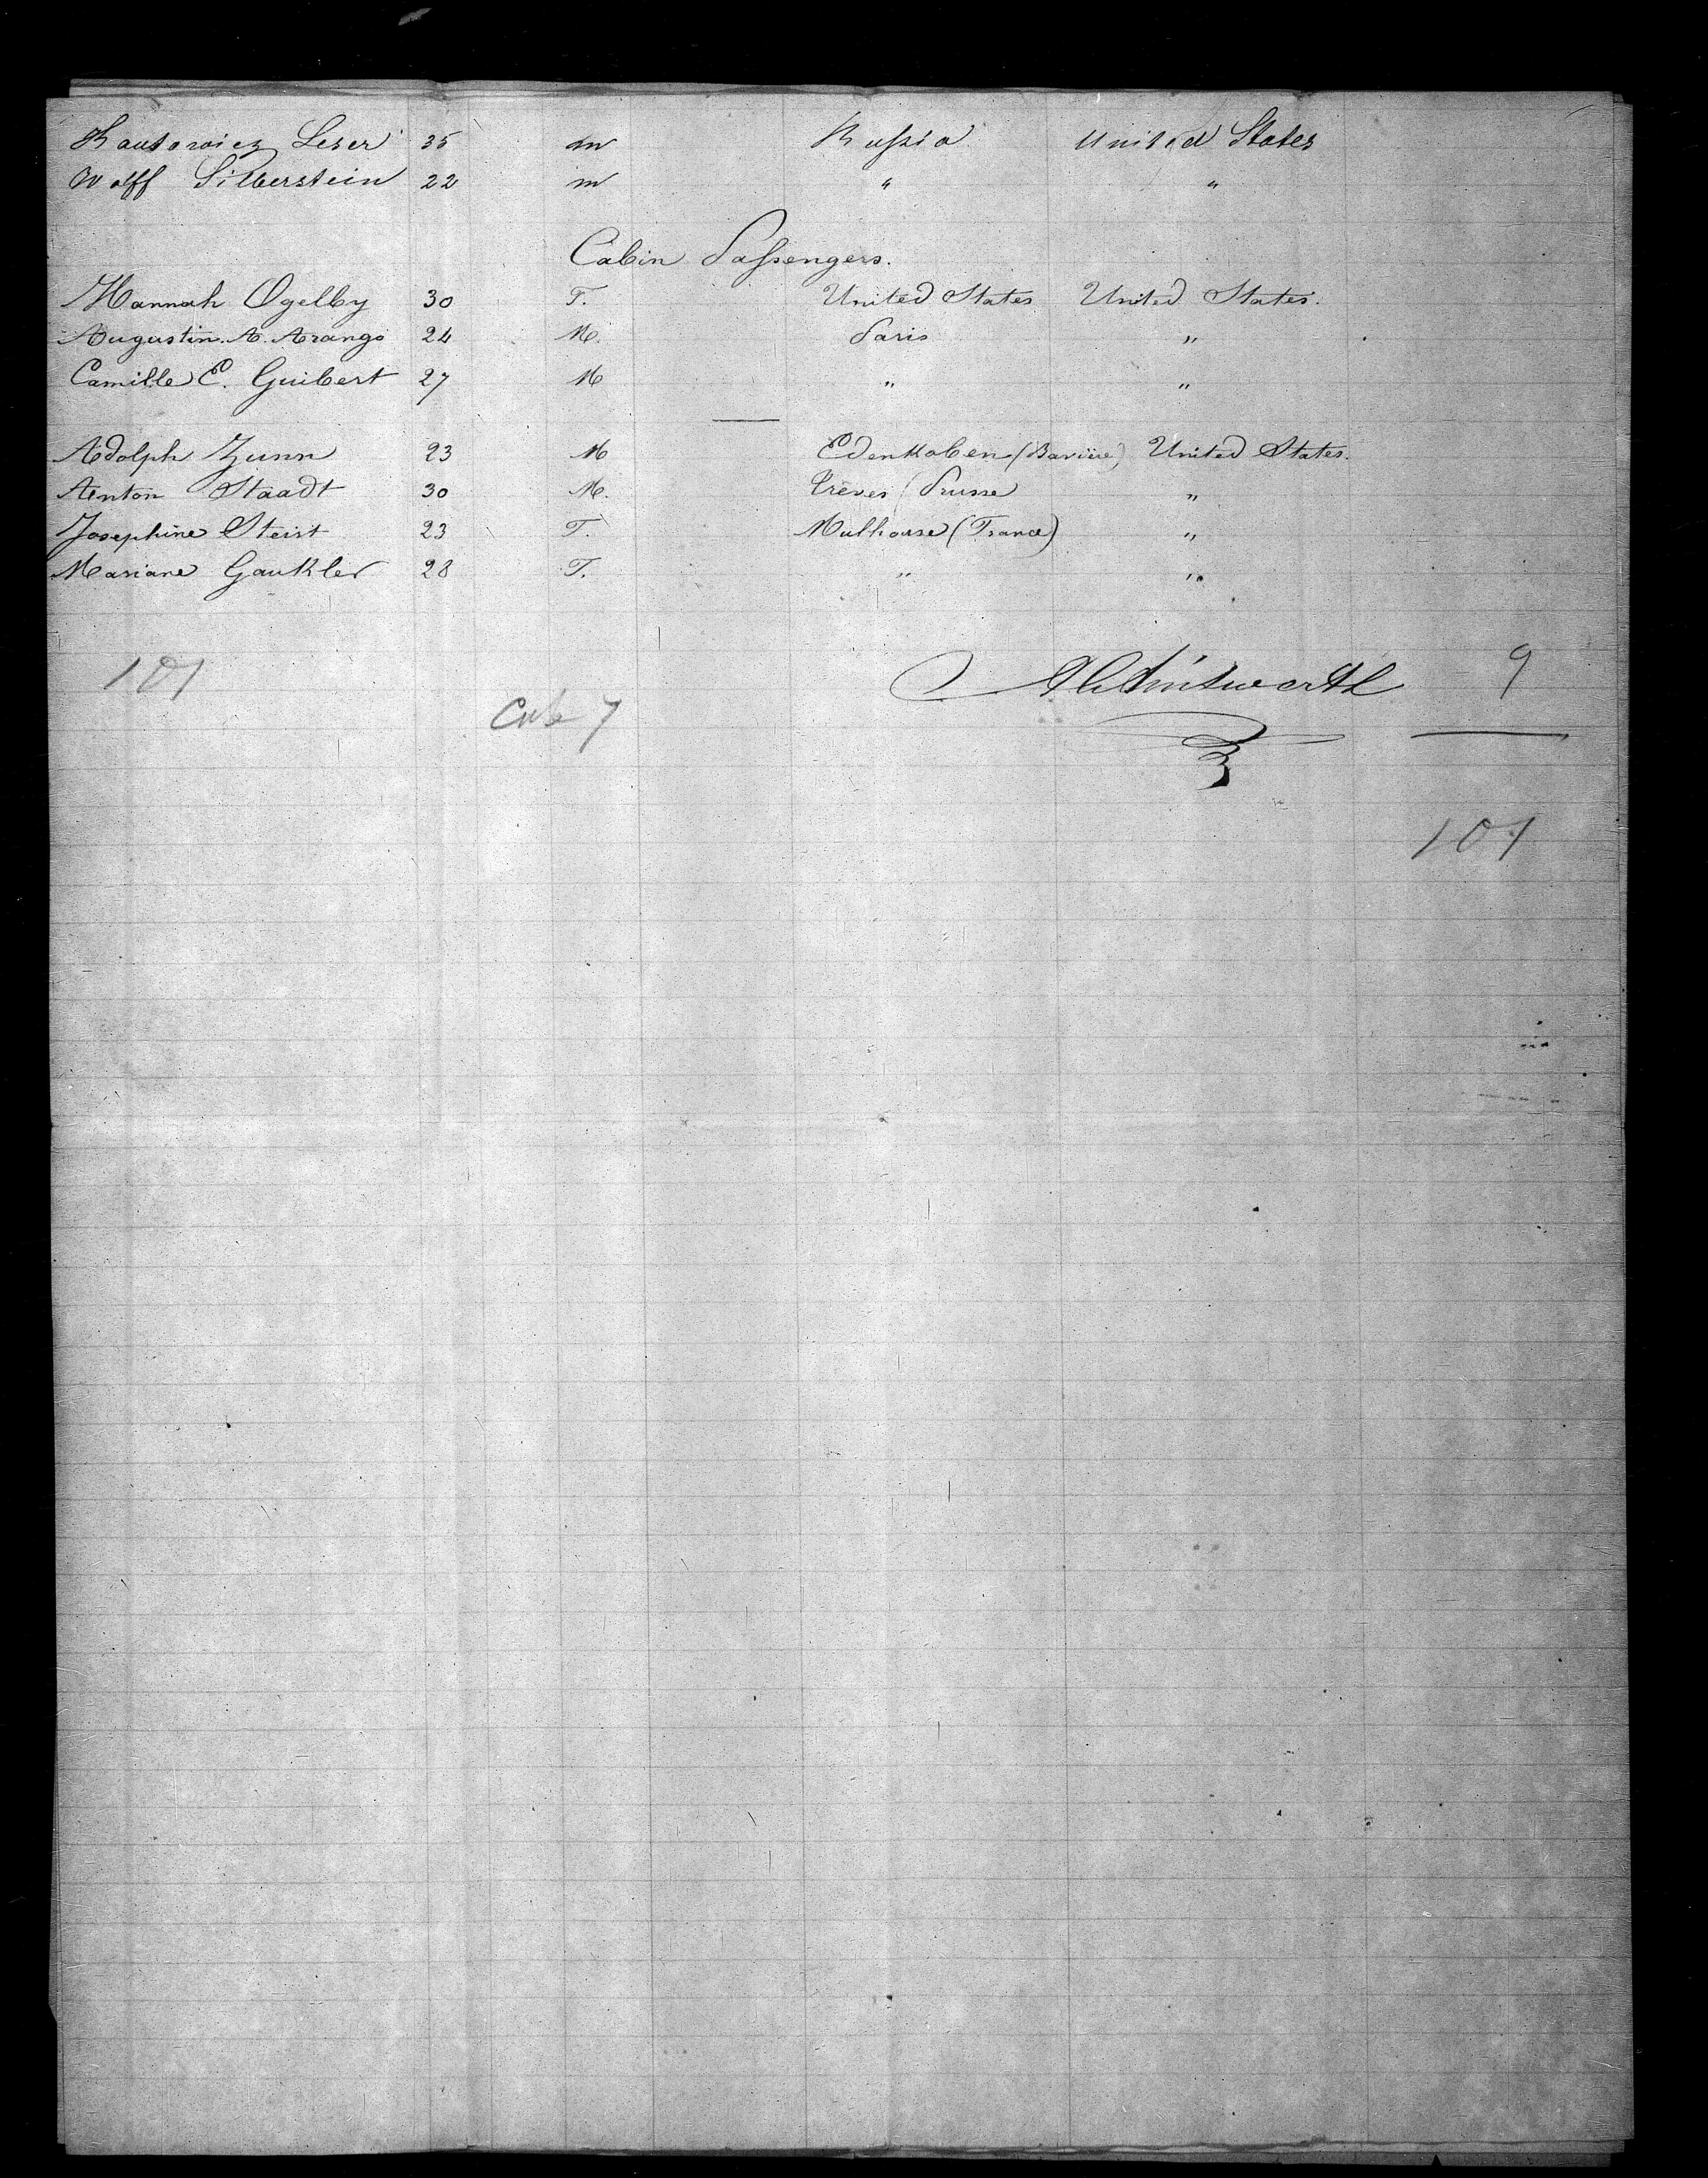 Kantorowicz Leser 35 m Russia United States
Wolff Silberstein 22 m " "
Cabin Passengers.
Hannah Ogelby 30 F. United States United States.
Augustin. A. Arango 24 M. Paris "
Camille E. Guibert 27 M " "
Adolph Zunn 23 M Edenkoben (Bavière) United States.
Anton Staadt 30 M. Trèves (Prusse "
Josephine Steist 23 F. Mulhouse (France) "
Mariane Gaukler 28 F. " "
101 9
Cab 7
101